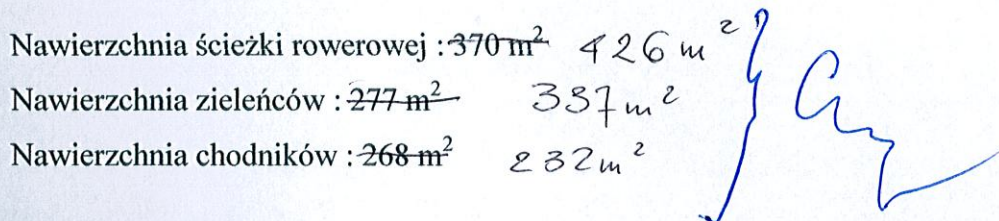 Nawierzchnia ścieżki rowerowej : 370 m² 426 m²
Nawierzchnia zieleńców : 277 m² 337 m²
Nawierzchnia chodników : 268 m² 232 m²